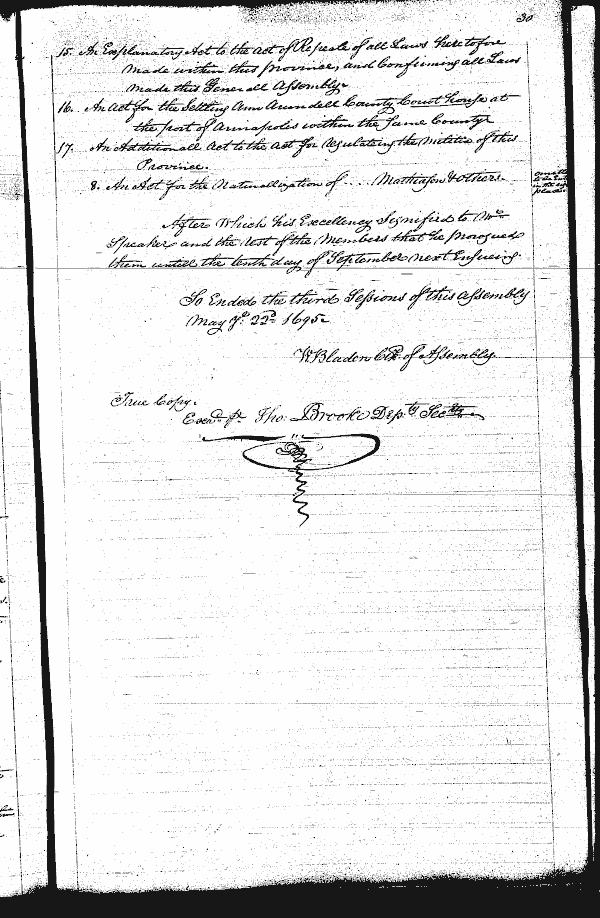 30
15. An Explanatory Act to the Act of Repeale of all Laws heretofore
made within this Province, and Confirming all Laws
made this Generall Assembly.
16. An Act for the Settling Ann Arundell County Court house at
the port of Annapolis within the Same County
17. An Additionall Act to the Act for Regulating the Militia of this
Province.
8. An Act for the Naturallization of .... Mathiason & others.
After Which his Excellency Signified to Mr
Speaker and the rest of the Members that he prorogued
them untill the tenth day of September next Ensueing.
So Ended the third Sessions of this Assembly
May ye 22d 1695
W Bladen Clk of Assembly.
True Copy.
Exd. pr. Tho: Brooke Depty Secty